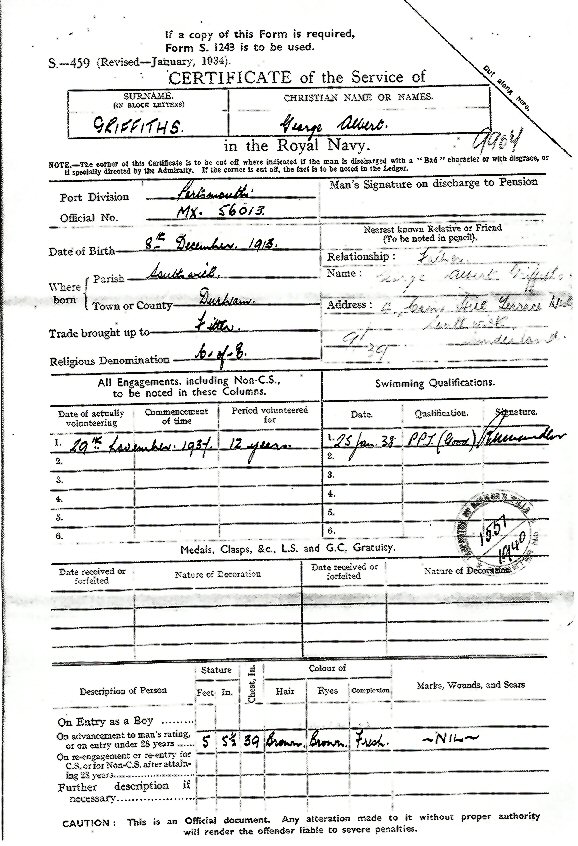 If a copy of this Form is required,
Form S. 1243 is to be used.
S.—459 (Revised—January, 1934).
Cut along here.
CERTIFICATE of the Service of
SURNAME. CHRISTIAN NAME OR NAMES.
(IN BLOCK LETTERS)
GRIFFITHS. George Albert.
in the Royal Navy.
NOTE.—The corner of this Certificate is to be cut off where indicated if the man is discharged with a "Bad" character or with disgrace, or
if specially directed by the Admiralty. If the corner is cut off, the fact is to be noted in the Ledger.
Port Division Portsmouth
Man's Signature on discharge to Pension
Official No. MX. 56013.
Date of Birth 8th December. 1913.
Nearest known Relative or Friend
(To be noted in pencil).
Relationship : Father
Where born
Parish Southwick.
Name : George Albert Griffiths
Town or County Durham.
Address :
Terrace
Southwick
Sunderland.
Trade brought up to Fitter.
Religious Denomination C. of E.
All Engagements, including Non-C.S.,
to be noted in these Columns.
Swimming Qualifications.
Date of actually volunteering Commencement of time Period volunteered for
Date. Qualification. Signature.
1. 29th November. 1937. 12 years.
1. 25 Jan. 38 PPT (Good)
2. 2.
3. 3.
4. 4.
5. 5.
6. 6.
1557
1940
Medals, Clasps, &c., L.S. and G.C. Gratuity.
Date received or forfeited Nature of Decoration Date received or forfeited Nature of Decoration
Description of Person
Stature
Feet In.
Chest, In.
Colour of
Hair Eyes Complexion
Marks, Wounds, and Scars
On Entry as a Boy ........
On advancement to man's rating,
or on entry under 28 years ..... 5 5½ 39 Brown. Brown. Fresh. ~NIL~
On re-engagement or re-entry for
C.S. or for Non-C.S. after attain-
ing 28 years..................
Further description if
necessary..................
CAUTION : This is an Official document. Any alteration made to it without proper authority
will render the offender liable to severe penalties.